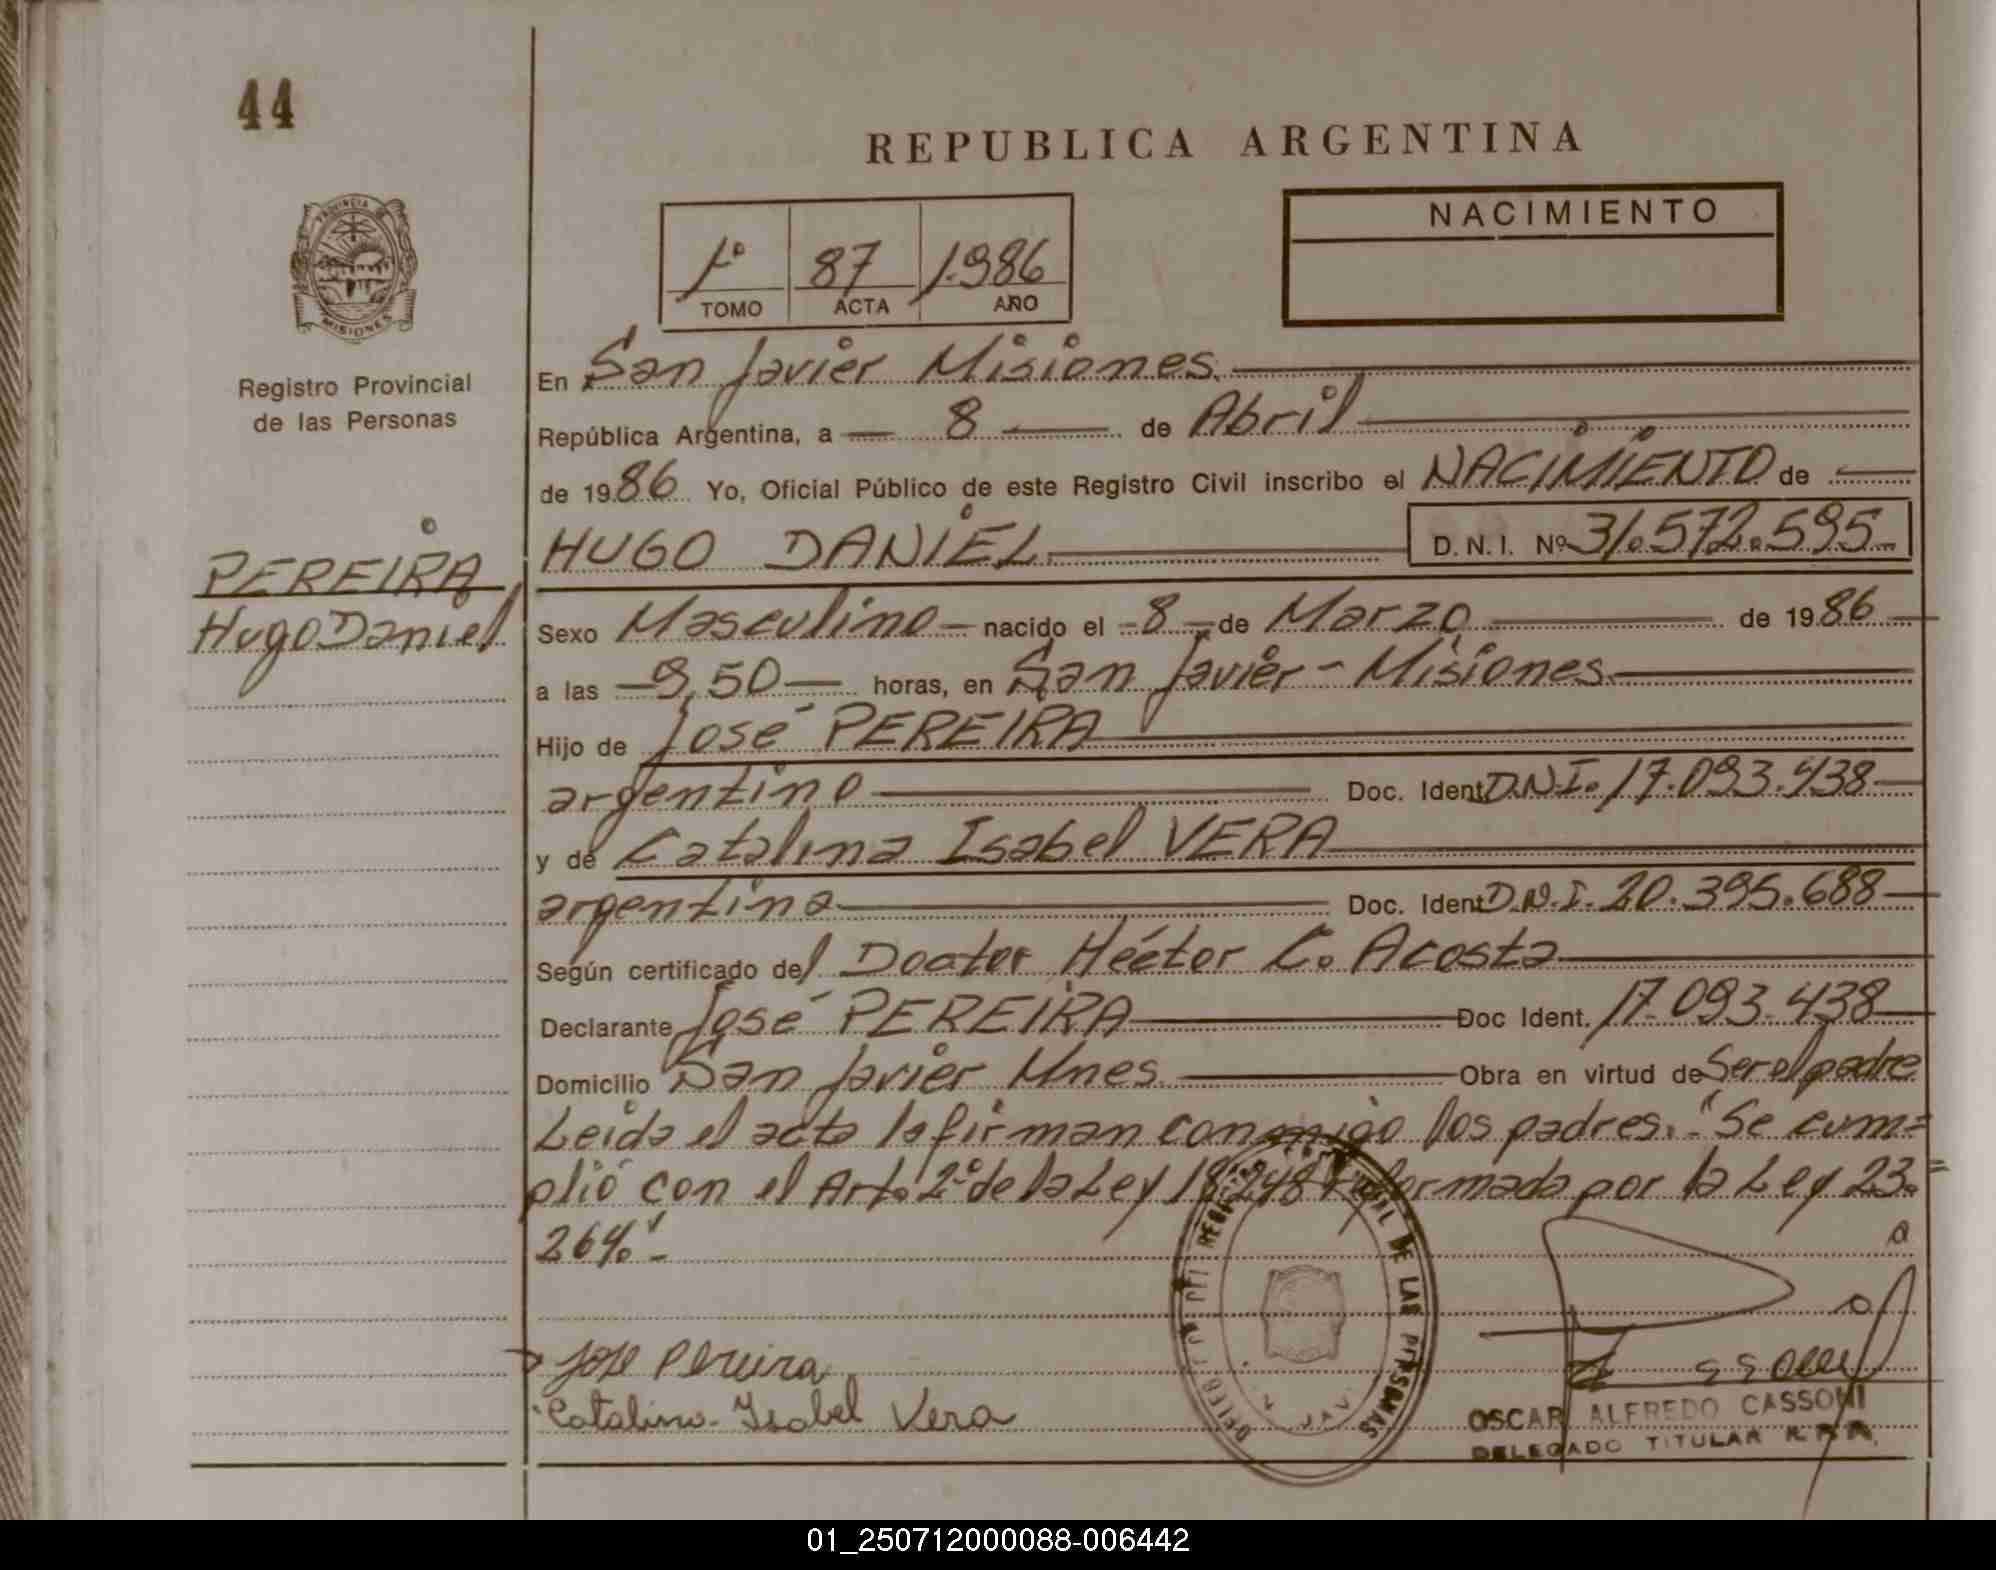 44
REPUBLICA ARGENTINA
PROVINCIA DE
MISIONES
Registro Provincial
de las Personas
1º 87 1.986
TOMO ACTA AÑO
NACIMIENTO
En San Javier Misiones
República Argentina, a 8 de Abril
de 1986 Yo, Oficial Público de este Registro Civil inscribo el NACIMIENTO de
HUGO DANIEL D.N.I. Nº 31.572.595
PEREIRA
Hugo Daniel
Sexo Masculino nacido el 8 de Marzo de 1986
a las 9,50 horas, en San Javier - Misiones
Hijo de José PEREIRA
argentino Doc. Ident D.N.I. 17.093.438
y de Catalina Isabel VERA
argentina Doc. Ident D.N.I. 20.395.688
Según certificado del Doctor Héctor C. Acosta
Declarante José PEREIRA Doc Ident. 17.093.438
Domicilio San Javier Mnes Obra en virtud de Ser el padre
Leida el acta la firman conmigo los padres. "Se cum=
plió con el Art. 2º de la Ley 18.248 reformada por la Ley 23.=
264."-
Jose Pereira
Catalina Isabel Vera
DE LAS PERSONAS
OSCAR ALFREDO CASSONI
DELEGADO TITULAR
01_250712000088-006442